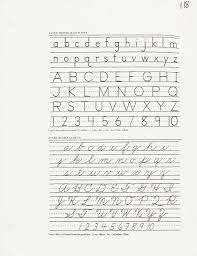 118
a b c d e f g h i j k l m
n o p q r s t u v w x y z
A B C D E F G H I
J K L M N O P Q
R S T U V W X Y Z
1 2 3 4 5 6 7 8 9 10
a b c d e f g h i j
k l m n o p q r
s t u v w x y z
A B C D E F G H I
J K L M N O P Q R
S T U V W X Y Z
1 2 3 4 5 6 7 8 9 10